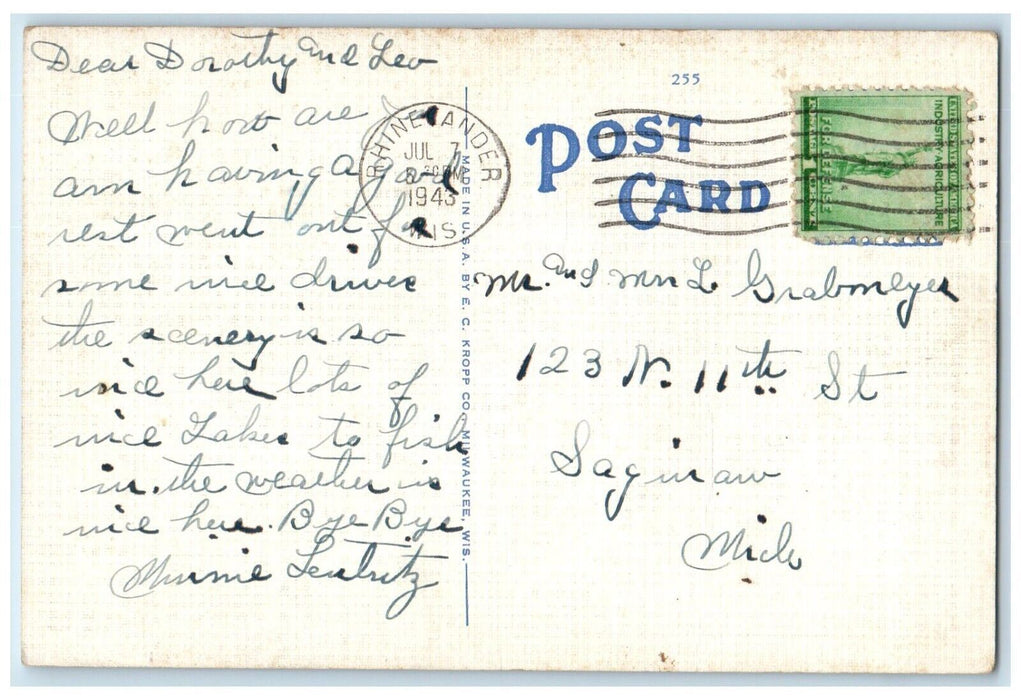 Dear Dorothy and Leo
Well how are
am having a good
rest went out for
some nice drives
the scenery is so
nice here lots of
nice Lakes to fish
in. the weather is
nice here. Bye Bye
Minnie
255
POST
CARD
RHINELANDER
JUL 7
PM
1943
WIS.
MADE IN U.S.A. BY E. C. KROPP CO., MILWAUKEE, WIS.
INDUSTRY AGRICULTURE
FOR DEFENSE
Mr. and Mrs L Grabmeyer
123 N. 11th St
Saginaw
Mich